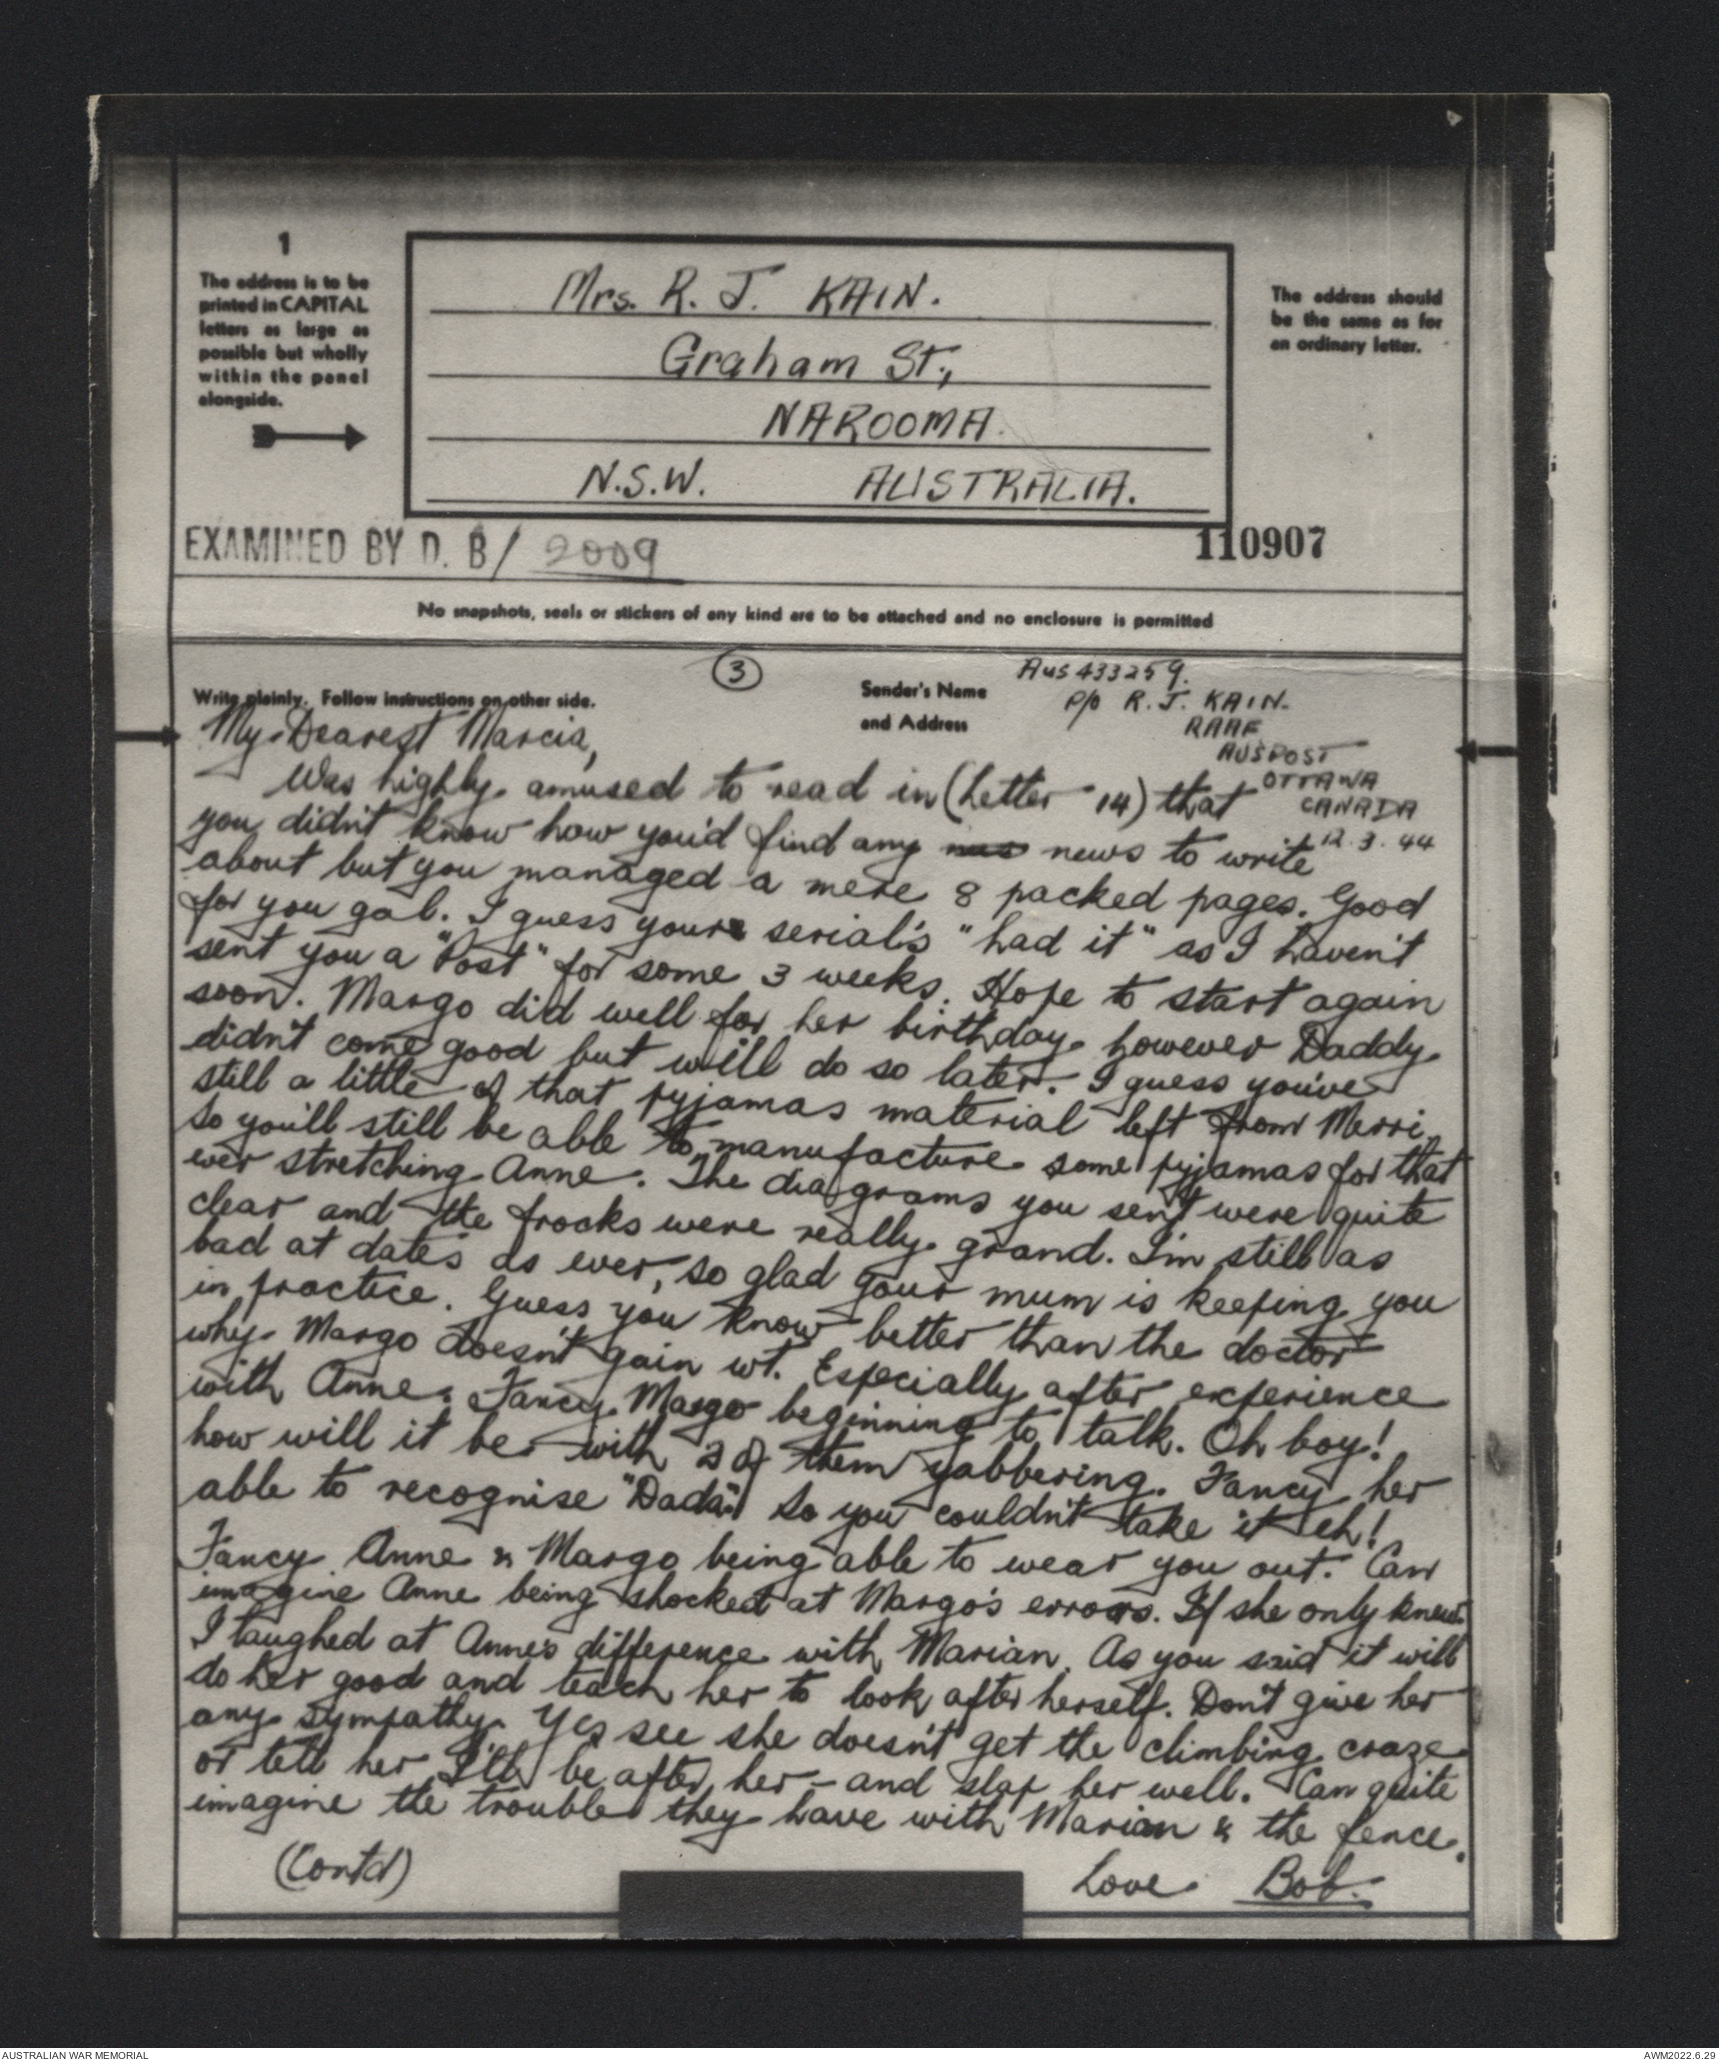 1
The address is to be
printed in CAPITAL
letters as large as
possible but wholly
within the panel
alongside.
Mrs. R. J. KAIN.
Graham St.,
NAROOMA.
N.S.W. AUSTRALIA.
The address should
be the same as for
an ordinary letter.
EXAMINED BY D. B/ 2009
110907
No snapshots, seals or stickers of any kind are to be attached and no enclosure is permitted
3
Write plainly. Follow instructions on other side.
Sender's Name
and Address
Aus 433259.
P/O R. J. KAIN.
RAAF
AUSPOST
OTTAWA
CANADA
12.3.44
My Dearest Marcia,
Was highly amused to read in (Letter 14) that
you didn't know how you'd find any news to write
about but you managed a mere 8 packed pages. Good
for you gal. I guess yours serial's "had it" as I haven't
sent you a "Post" for some 3 weeks. Hope to start again
soon. Margo did well for her birthday however Daddy
didn't come good but will do so later. I guess you've
still a little of that pyjamas material left from Merri
so you'll still be able to manufacture some pyjamas for that
ever stretching Anne. The diagrams you sent were quite
clear and the frocks were really grand. I'm still as
bad at dates as ever, so glad your mum is keeping you
in practice. Guess you know better than the doctor
why Margo doesn't gain wt. Especially after experience
with Anne. Fancy Margo beginning to talk. Oh boy!
how will it be with 3 of them yabbering. Fancy her
able to recognise "Dada". So you couldn't take it eh!
Fancy Anne & Margo being able to wear you out. Can
imagine Anne being shocked at Margo's errors. If she only knew.
I laughed at Anne's difference with Marian. As you said it will
do her good and teach her to look after herself. Don't give her
any sympathy. Yes see she doesn't get the climbing craze
or tell her I'll be after her - and slap her well. Can quite
imagine the trouble they have with Marian & the fence.
(Contd)
Love Bob.
AUSTRALIAN WAR MEMORIAL
AWM2022.6.29